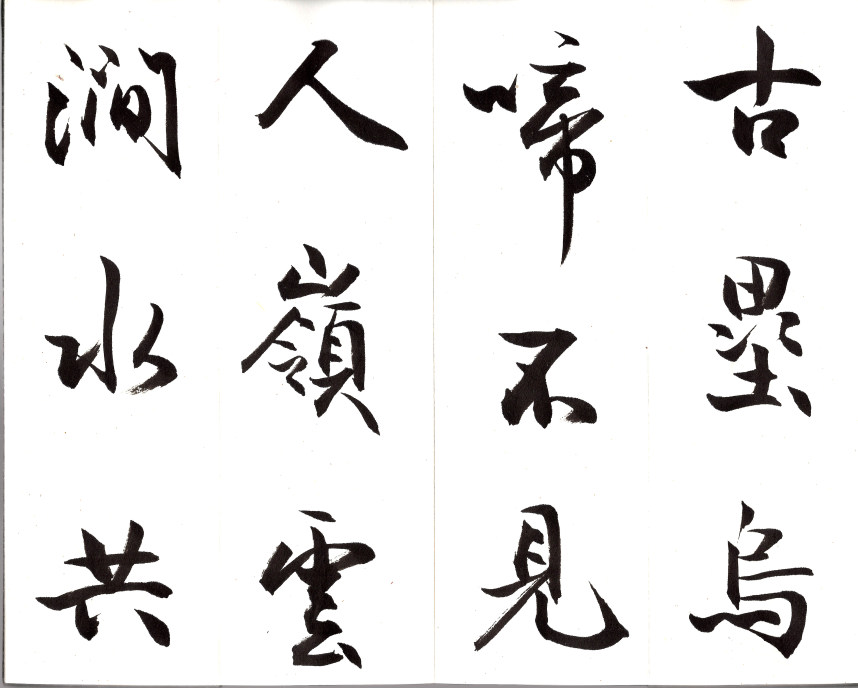 古塁烏
啼不見
人嶺雲
澗水共